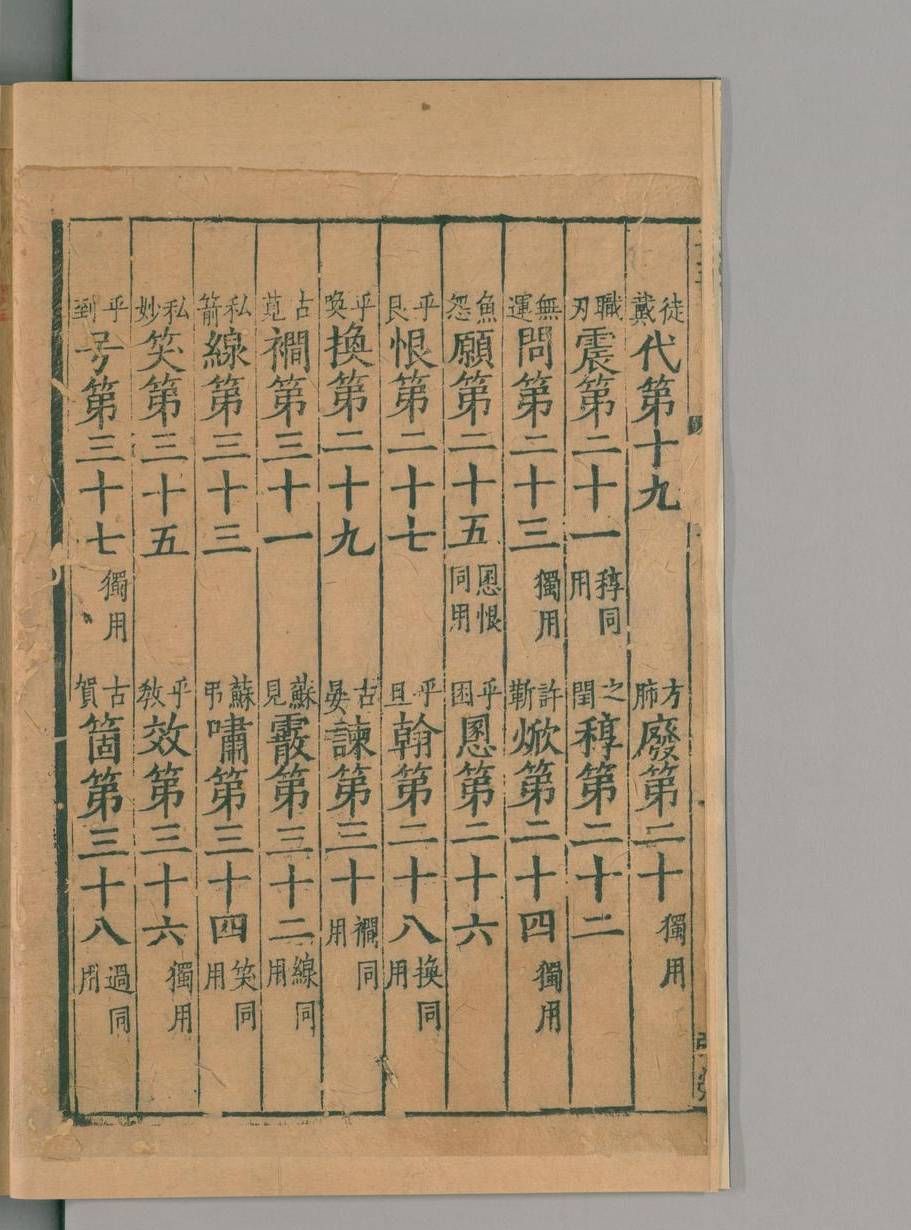 徒戴代第十九 方肺廢第二十獨用
職刃震第二十一稕同用 之閏稕第二十二
無運問第二十三獨用 許靳焮第二十四獨用
魚怨願第二十五慁恨同用 乎困慁第二十六
乎艮恨第二十七 乎旦翰第二十八換同用
乎喚換第二十九 古晏諫第三十襉同用
古莧襉第三十一 蘇見霰第三十二線同用
私箭線第三十三 蘇弔嘯第三十四笑同用
私妙笑第三十五 乎敎效第三十六獨用
乎到号第三十七獨用 古賀箇第三十八過同用